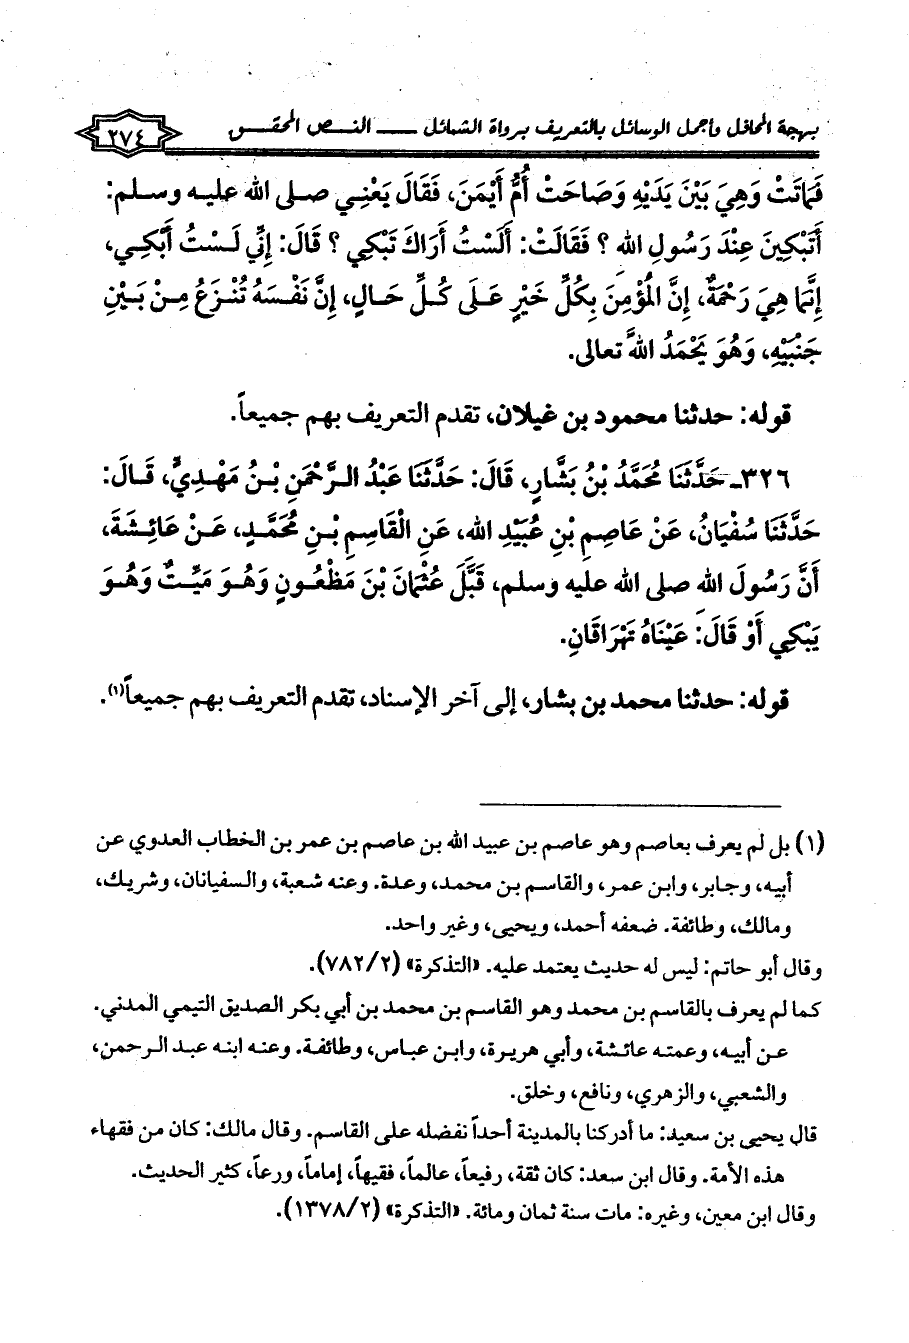 بهجة المحافل وأجمل الوسائل بالتعريف برواة الشمائل ــــ النـص المحقـق
٢٧٤
فَمَاتَتْ وَهِيَ بَيْنَ يَدَيْهِ وَصَاحَتْ أُمُّ أَيْمَنَ، فَقَالَ يَعْنِي صلى الله عليه وسلم:
أَتَبْكِينَ عِنْدَ رَسُولِ الله ؟ فَقَالَتْ: أَلَسْتُ أَرَاكَ تَبْكِي ؟ قَالَ: إِنِّي لَسْتُ أَبْكِي،
إِنَّمَا هِيَ رَحْمَةٌ، إِنَّ المُؤْمِنَ بِكُلِّ خَيْرٍ عَلَى كُلِّ حَالٍ، إِنَّ نَفْسَهُ تُنْزَعُ مِنْ بَيْنِ
جَنْبَيْهِ، وَهُوَ يَحْمَدُ اللهَ تعالى.
قوله: حدثنا محمود بن غيلان، تقدم التعريف بهم جميعاً.
٣٢٦ـ حَدَّثَنَا مُحَمَّدُ بْنُ بَشَّارٍ، قَالَ: حَدَّثَنَا عَبْدُ الرَّحْمَنِ بْنُ مَهْدِيٍّ، قَالَ:
حَدَّثَنَا سُفْيَانُ، عَنْ عَاصِمِ بْنِ عُبَيْدِ الله، عَنِ الْقَاسِمِ بْنِ مُحَمَّدٍ، عَنْ عَائِشَةَ،
أَنَّ رَسُولَ الله صلى الله عليه وسلم، قَبَّلَ عُثْمَانَ بْنَ مَظْعُونٍ وَهُوَ مَيِّتٌ وَهُوَ
يَبْكِي أَوْ قَالَ: عَيْنَاهُ تَهْرَاقَانِ.
قوله: حدثنا محمد بن بشار، إلى آخر الإسناد، تقدم التعريف بهم جميعاً(١).
(١) بل لم يعرف بعاصم وهو عاصم بن عبيد الله بن عاصم بن عمر بن الخطاب العدوي عن
أبيه، وجابر، وابن عمر، والقاسم بن محمد، وعدة. وعنه شعبة، والسفيانان، وشريك،
ومالك، وطائفة. ضعفه أحمد، ويحيى، وغير واحد.
وقال أبو حاتم: ليس له حديث يعتمد عليه. «التذكرة» (٧٨٢/٢).
كما لم يعرف بالقاسم بن محمد وهو القاسم بن محمد بن أبي بكر الصديق التيمي المدني.
عن أبيه، وعمته عائشة، وأبي هريرة، وابن عباس، وطائفة. وعنه ابنه عبد الرحمن،
والشعبي، والزهري، ونافع، وخلق.
قال يحيى بن سعيد: ما أدركنا بالمدينة أحداً نفضله على القاسم. وقال مالك: كان من فقهاء
هذه الأمة. وقال ابن سعد: كان ثقة، رفيعاً، عالماً، فقيهاً، إماماً، ورعاً، كثير الحديث.
وقال ابن معين، وغيره: مات سنة ثمان ومائة. «التذكرة» (١٣٧٨/٢).